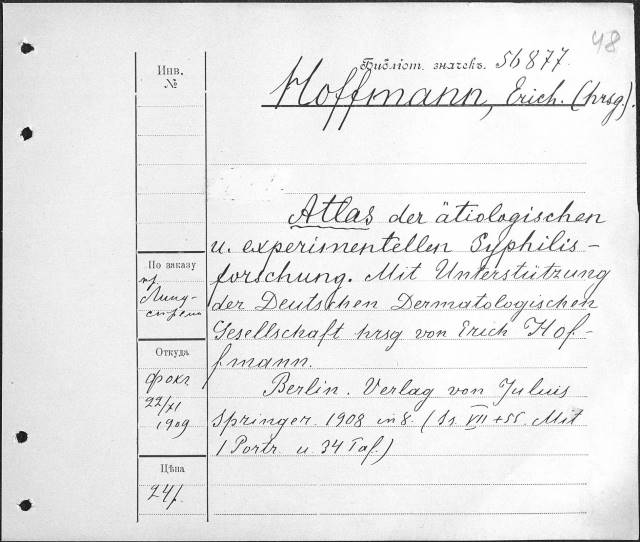 48
Библіот. значекъ. 56877.
Инв.
№
Hoffmann, Erich. (hrsg).
Atlas der ätiologischen
u. experimentellen Syphilis-
forschung. Mit Unterstützung
der Deutschen Dermatologischen
Gesellschaft hrsg von Erich Hof-
fmann.
Berlin. Verlag von Juluis
Springer. 1908 in 8. (Ss. VII + 55. Mit
1 Portr. u. 34 Taf.)
По заказу
пр.
Линд-
стрема
Откуда
фокс
22/XI
1909
Цѣна
24/.